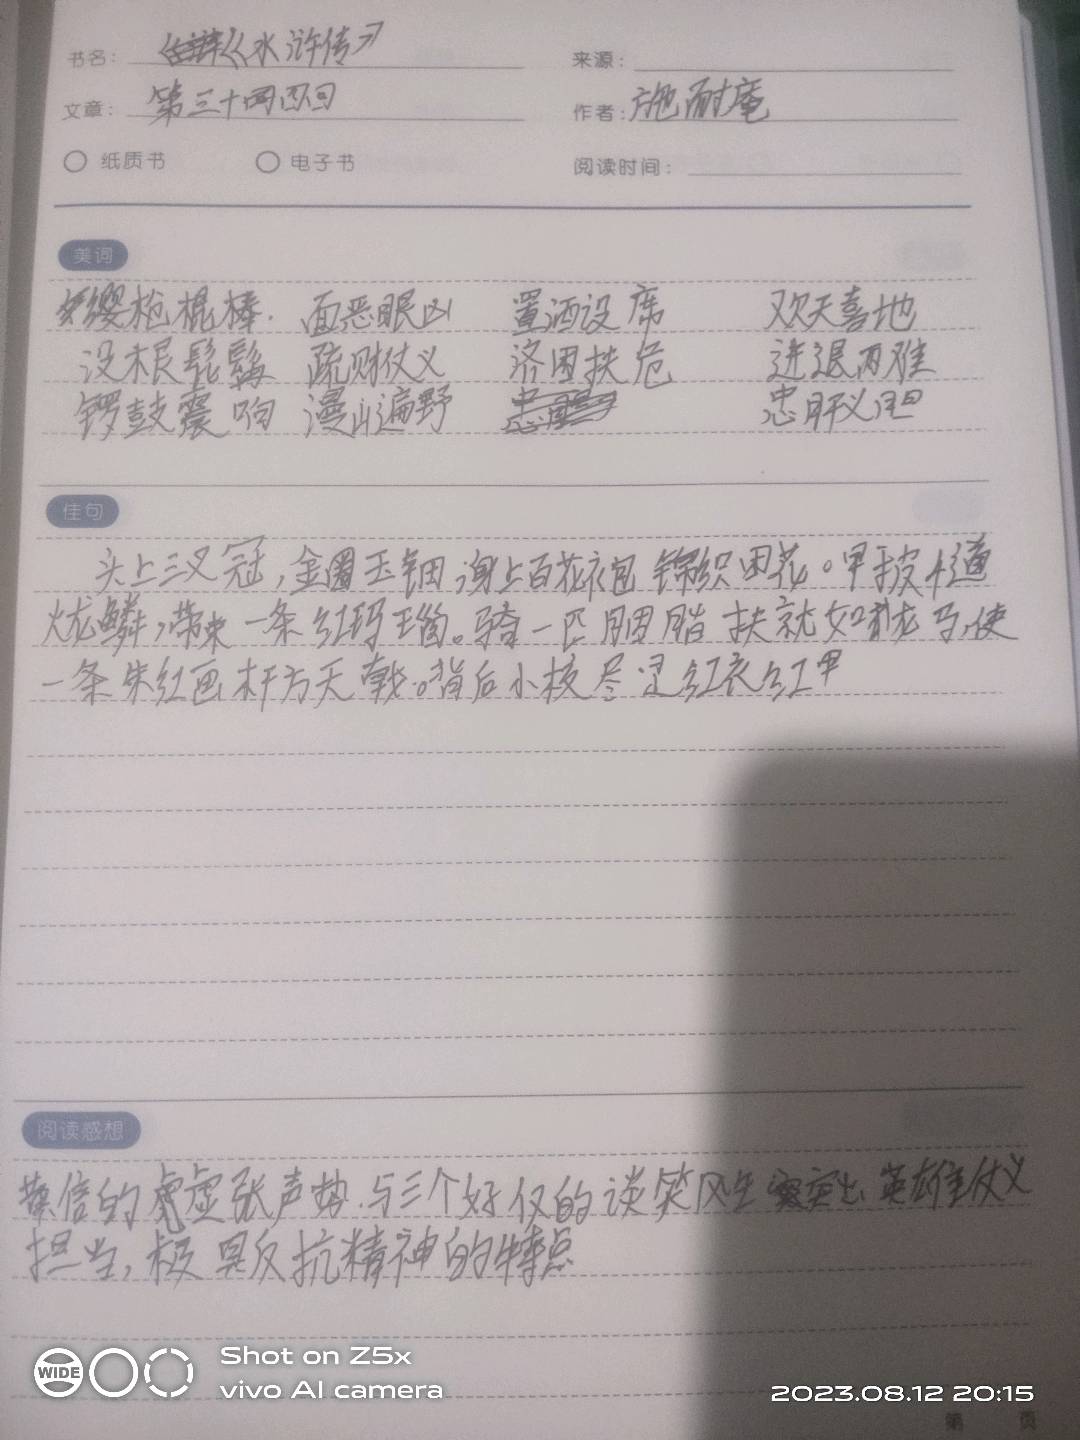 书名： 《水浒传》 来源：
文章： 第三十四回 作者： 施耐庵
纸质书 电子书 阅读时间：
美词
缨枪棍棒 面恶眼凶 置酒设席 欢天喜地
没根髭鬚 疏财仗义 济困扶危 进退两难
锣鼓震响 漫山遍野 忠肝义胆
佳句
头上三叉冠，金圈玉钿，身上百花袍 锦织团花。甲披千道
火龙鳞，带束一条红玛瑙。骑一匹胭脂抹就如龙马，使
一条朱红画杆方天戟。背后小校尽是红衣红甲
阅读感想
黄信的虚张声势与三个好汉的谈笑风生 突出英雄仗义
担当，极具反抗精神的特点
WIDE
Shot on Z5x
vivo AI camera
2023.08.12 20:15
第 页